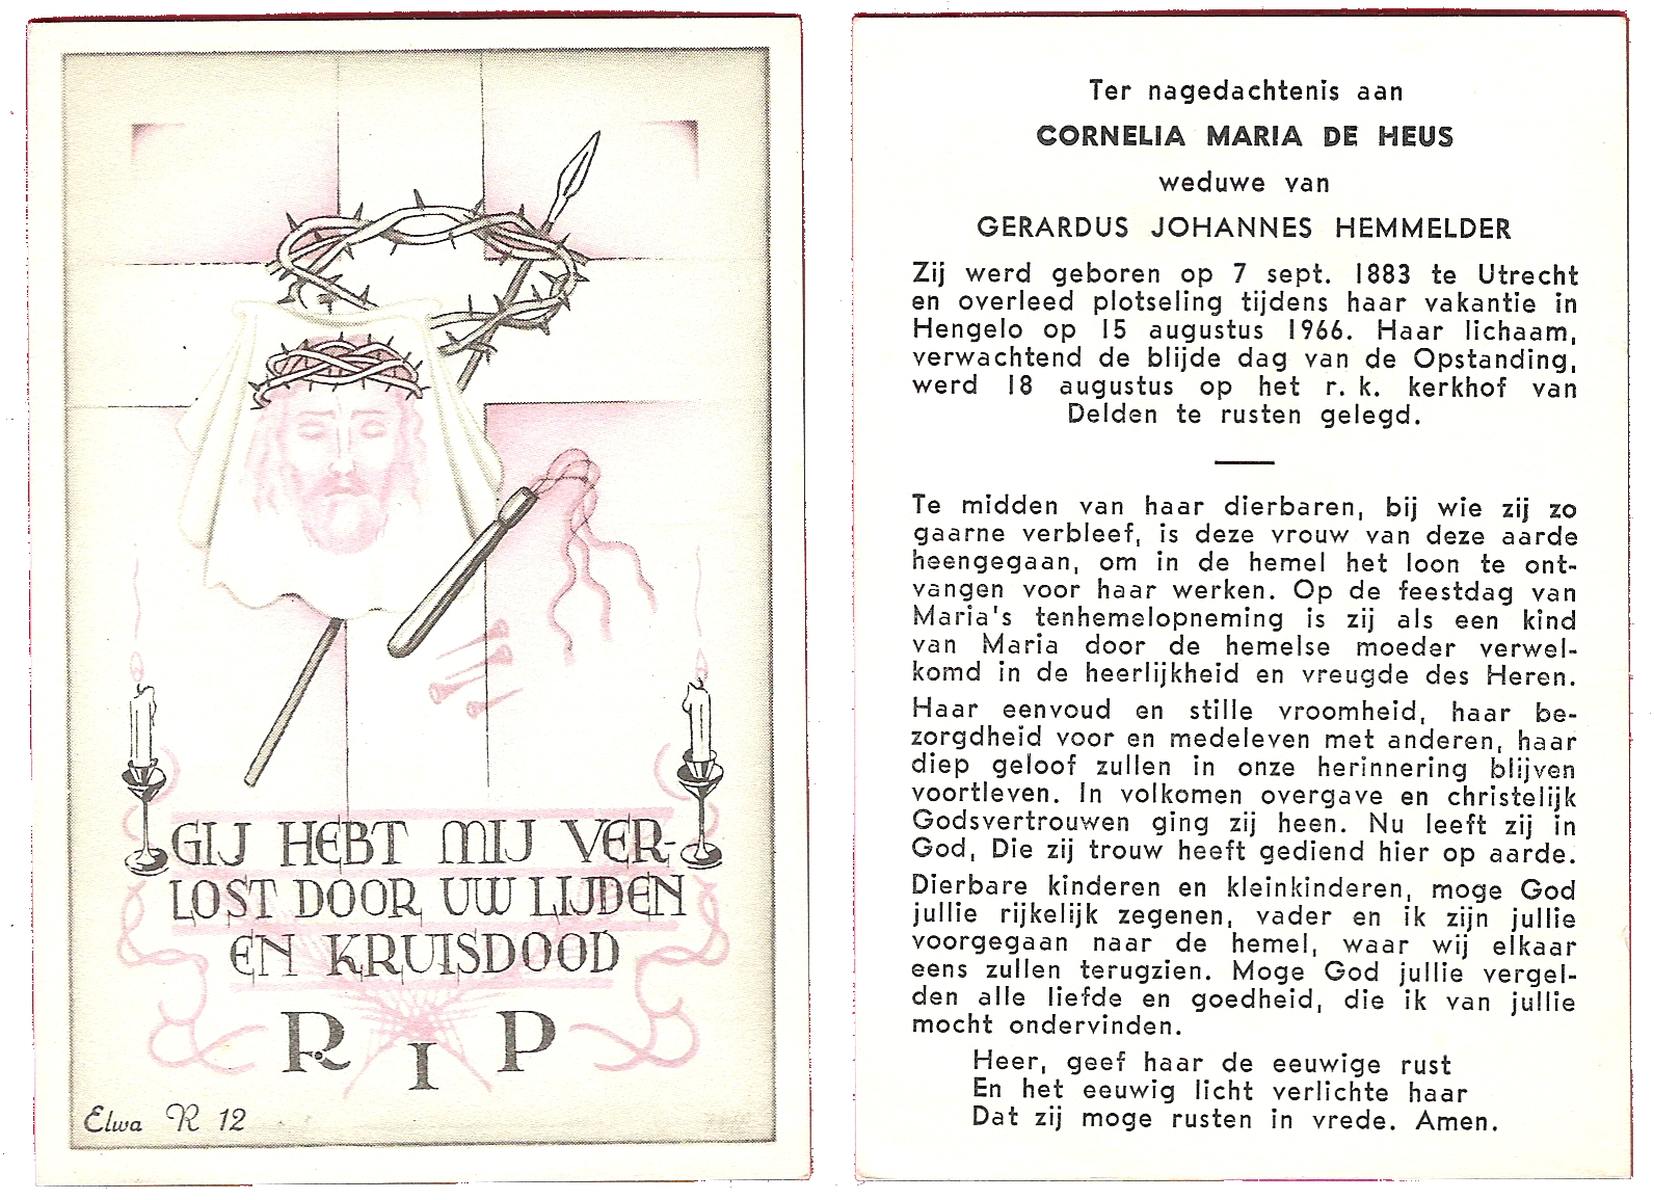 GIJ HEBT MIJ VER-
LOST DOOR UW LIJDEN
EN KRUISDOOD
R I P
Elwa R 12
Ter nagedachtenis aan
CORNELIA MARIA DE HEUS
weduwe van
GERARDUS JOHANNES HEMMELDER
Zij werd geboren op 7 sept. 1883 te Utrecht
en overleed plotseling tijdens haar vakantie in
Hengelo op 15 augustus 1966. Haar lichaam,
verwachtend de blijde dag van de Opstanding,
werd 18 augustus op het r. k. kerkhof van
Delden te rusten gelegd.
Te midden van haar dierbaren, bij wie zij zo
gaarne verbleef, is deze vrouw van deze aarde
heengegaan, om in de hemel het loon te ont-
vangen voor haar werken. Op de feestdag van
Maria's tenhemelopneming is zij als een kind
van Maria door de hemelse moeder verwel-
komd in de heerlijkheid en vreugde des Heren.
Haar eenvoud en stille vroomheid, haar be-
zorgdheid voor en medeleven met anderen, haar
diep geloof zullen in onze herinnering blijven
voortleven. In volkomen overgave en christelijk
Godsvertrouwen ging zij heen. Nu leeft zij in
God, Die zij trouw heeft gediend hier op aarde.
Dierbare kinderen en kleinkinderen, moge God
jullie rijkelijk zegenen, vader en ik zijn jullie
voorgegaan naar de hemel, waar wij elkaar
eens zullen terugzien. Moge God jullie vergel-
den alle liefde en goedheid, die ik van jullie
mocht ondervinden.
Heer, geef haar de eeuwige rust
En het eeuwig licht verlichte haar
Dat zij moge rusten in vrede. Amen.